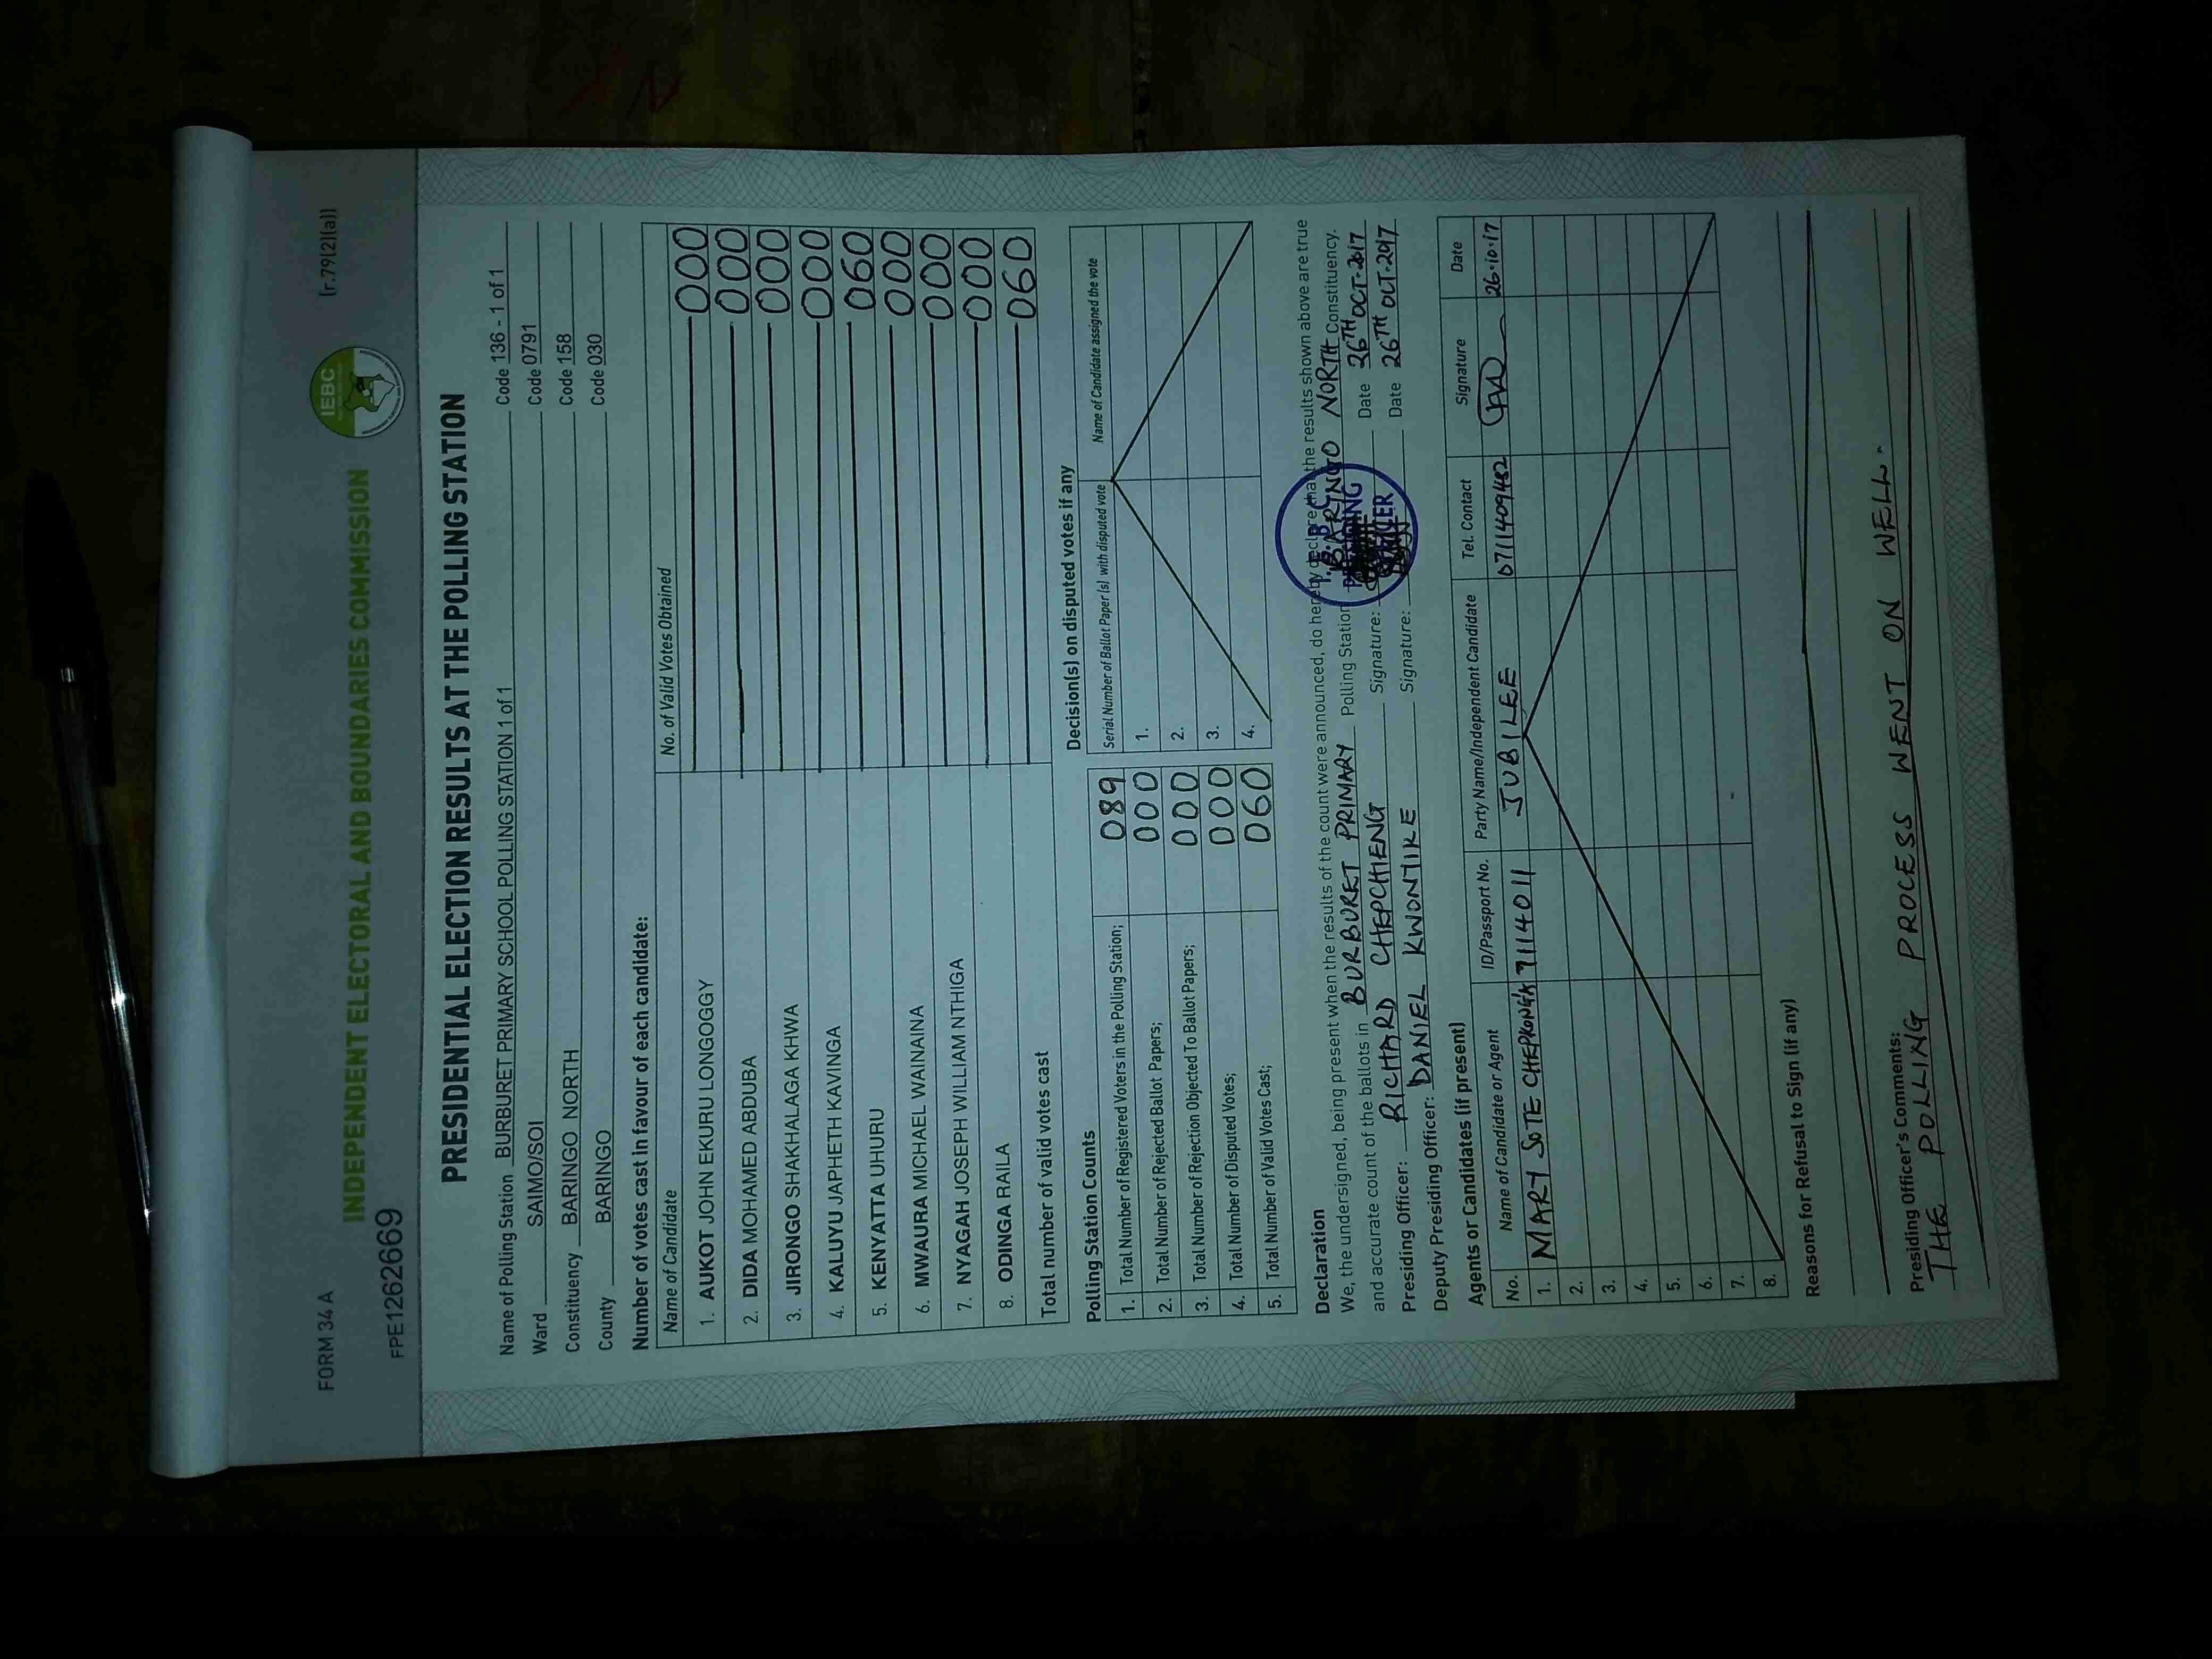 FORM 34 A
(r.79(2)(a))
IEBC
INDEPENDENT ELECTORAL AND BOUNDARIES COMMISSION
FPE1262669
PRESIDENTIAL ELECTION RESULTS AT THE POLLING STATION
Name of Polling Station BURBURET PRIMARY SCHOOL POLLING STATION 1 of 1 Code 136 - 1 of 1
Ward SAIMO/SOI Code 0791
Constituency BARINGO NORTH Code 158
County BARINGO Code 030
Number of votes cast in favour of each candidate:
Name of Candidate No. of Valid Votes Obtained
1. AUKOT JOHN EKURU LONGOGGY 000
2. DIDA MOHAMED ABDUBA 000
3. JIRONGO SHAKHALAGA KHWA 000
4. KALUYU JAPHETH KAVINGA 000
5. KENYATTA UHURU 060
6. MWAURA MICHAEL WAINAINA 000
7. NYAGAH JOSEPH WILLIAM NTHIGA 000
8. ODINGA RAILA 000
Total number of valid votes cast 060
Polling Station Counts
1. Total Number of Registered Voters in the Polling Station; 089
2. Total Number of Rejected Ballot Papers; 000
3. Total Number of Rejection Objected To Ballot Papers; 000
4. Total Number of Disputed Votes; 000
5. Total Number of Valid Votes Cast; 060
Decision(s) on disputed votes if any
Serial Number of Ballot Paper (s) with disputed vote Name of Candidate assigned the vote
1.
2.
3.
4.
Declaration
We, the undersigned, being present when the results of the count were announced, do hereby declare that the results shown above are true
and accurate count of the ballots in BURBURET PRIMARY Polling Station BARINGO NORTH Constituency.
Presiding Officer: RICHARD CHEPCHIENG Signature: Date 26TH OCT-2017
Deputy Presiding Officer: DANIEL KWONTIKE Signature: Date 26TH OCT-2017
Agents or Candidates (if present)
No. Name of Candidate or Agent ID/Passport No. Party Name/Independent Candidate Tel. Contact Signature Date
1. MARY SOTE CHEPRONGK 7114011 JUBILEE 0711409482 26.10.17
2.
3.
4.
5.
6.
7.
8.
Reasons for Refusal to Sign (if any)
Presiding Officer's Comments:
THE POLLING PROCESS WENT ON WELL.